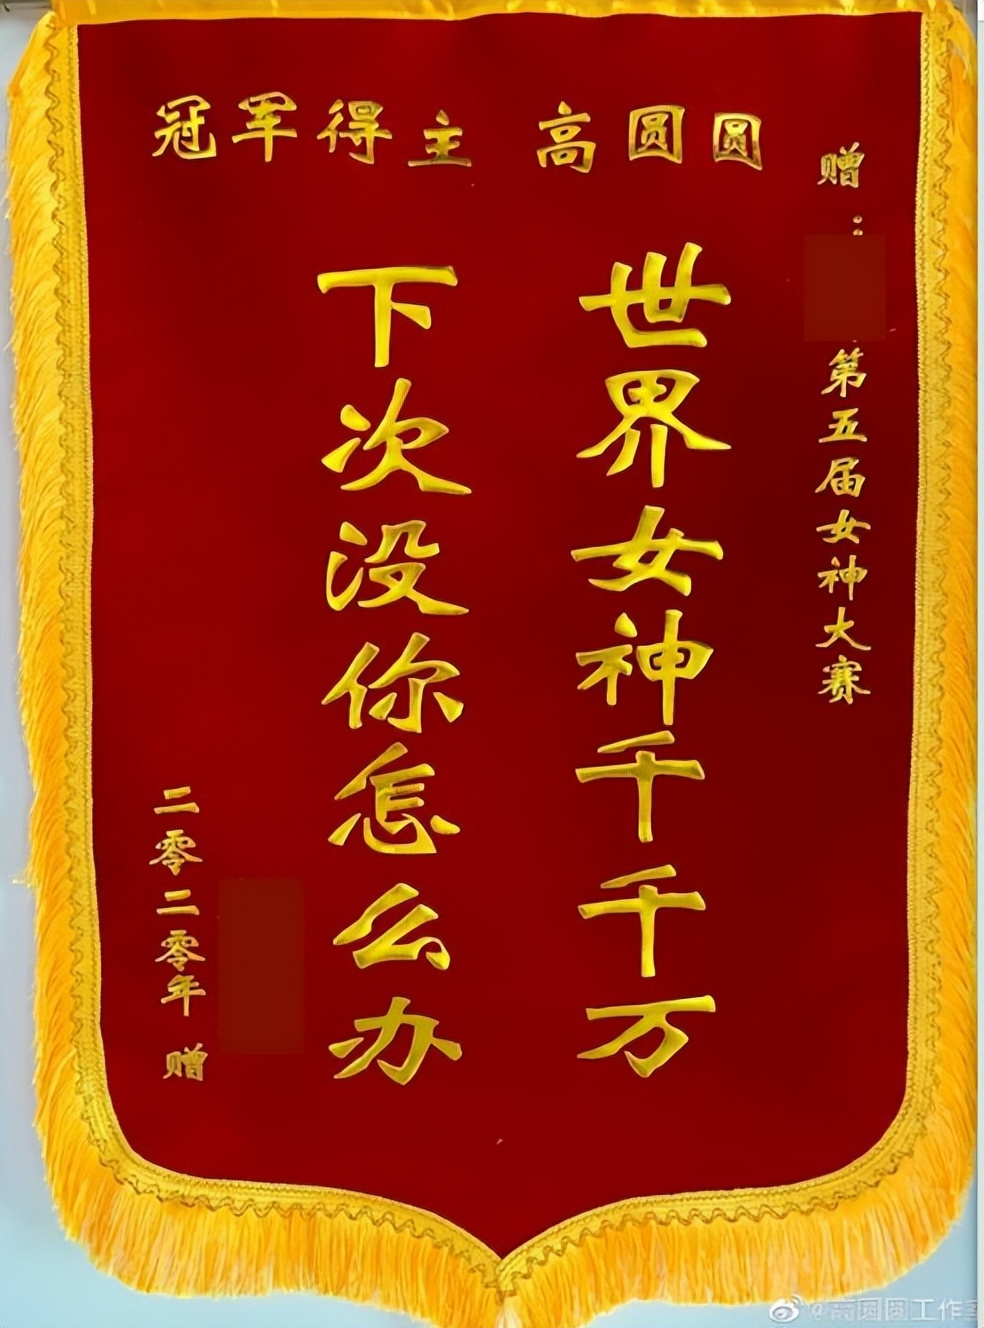 冠军得主 高圆圆
赠：
第五届女神大赛
世界女神千千万
下次没你怎么办
二零二零年 赠
@高圆圆工作